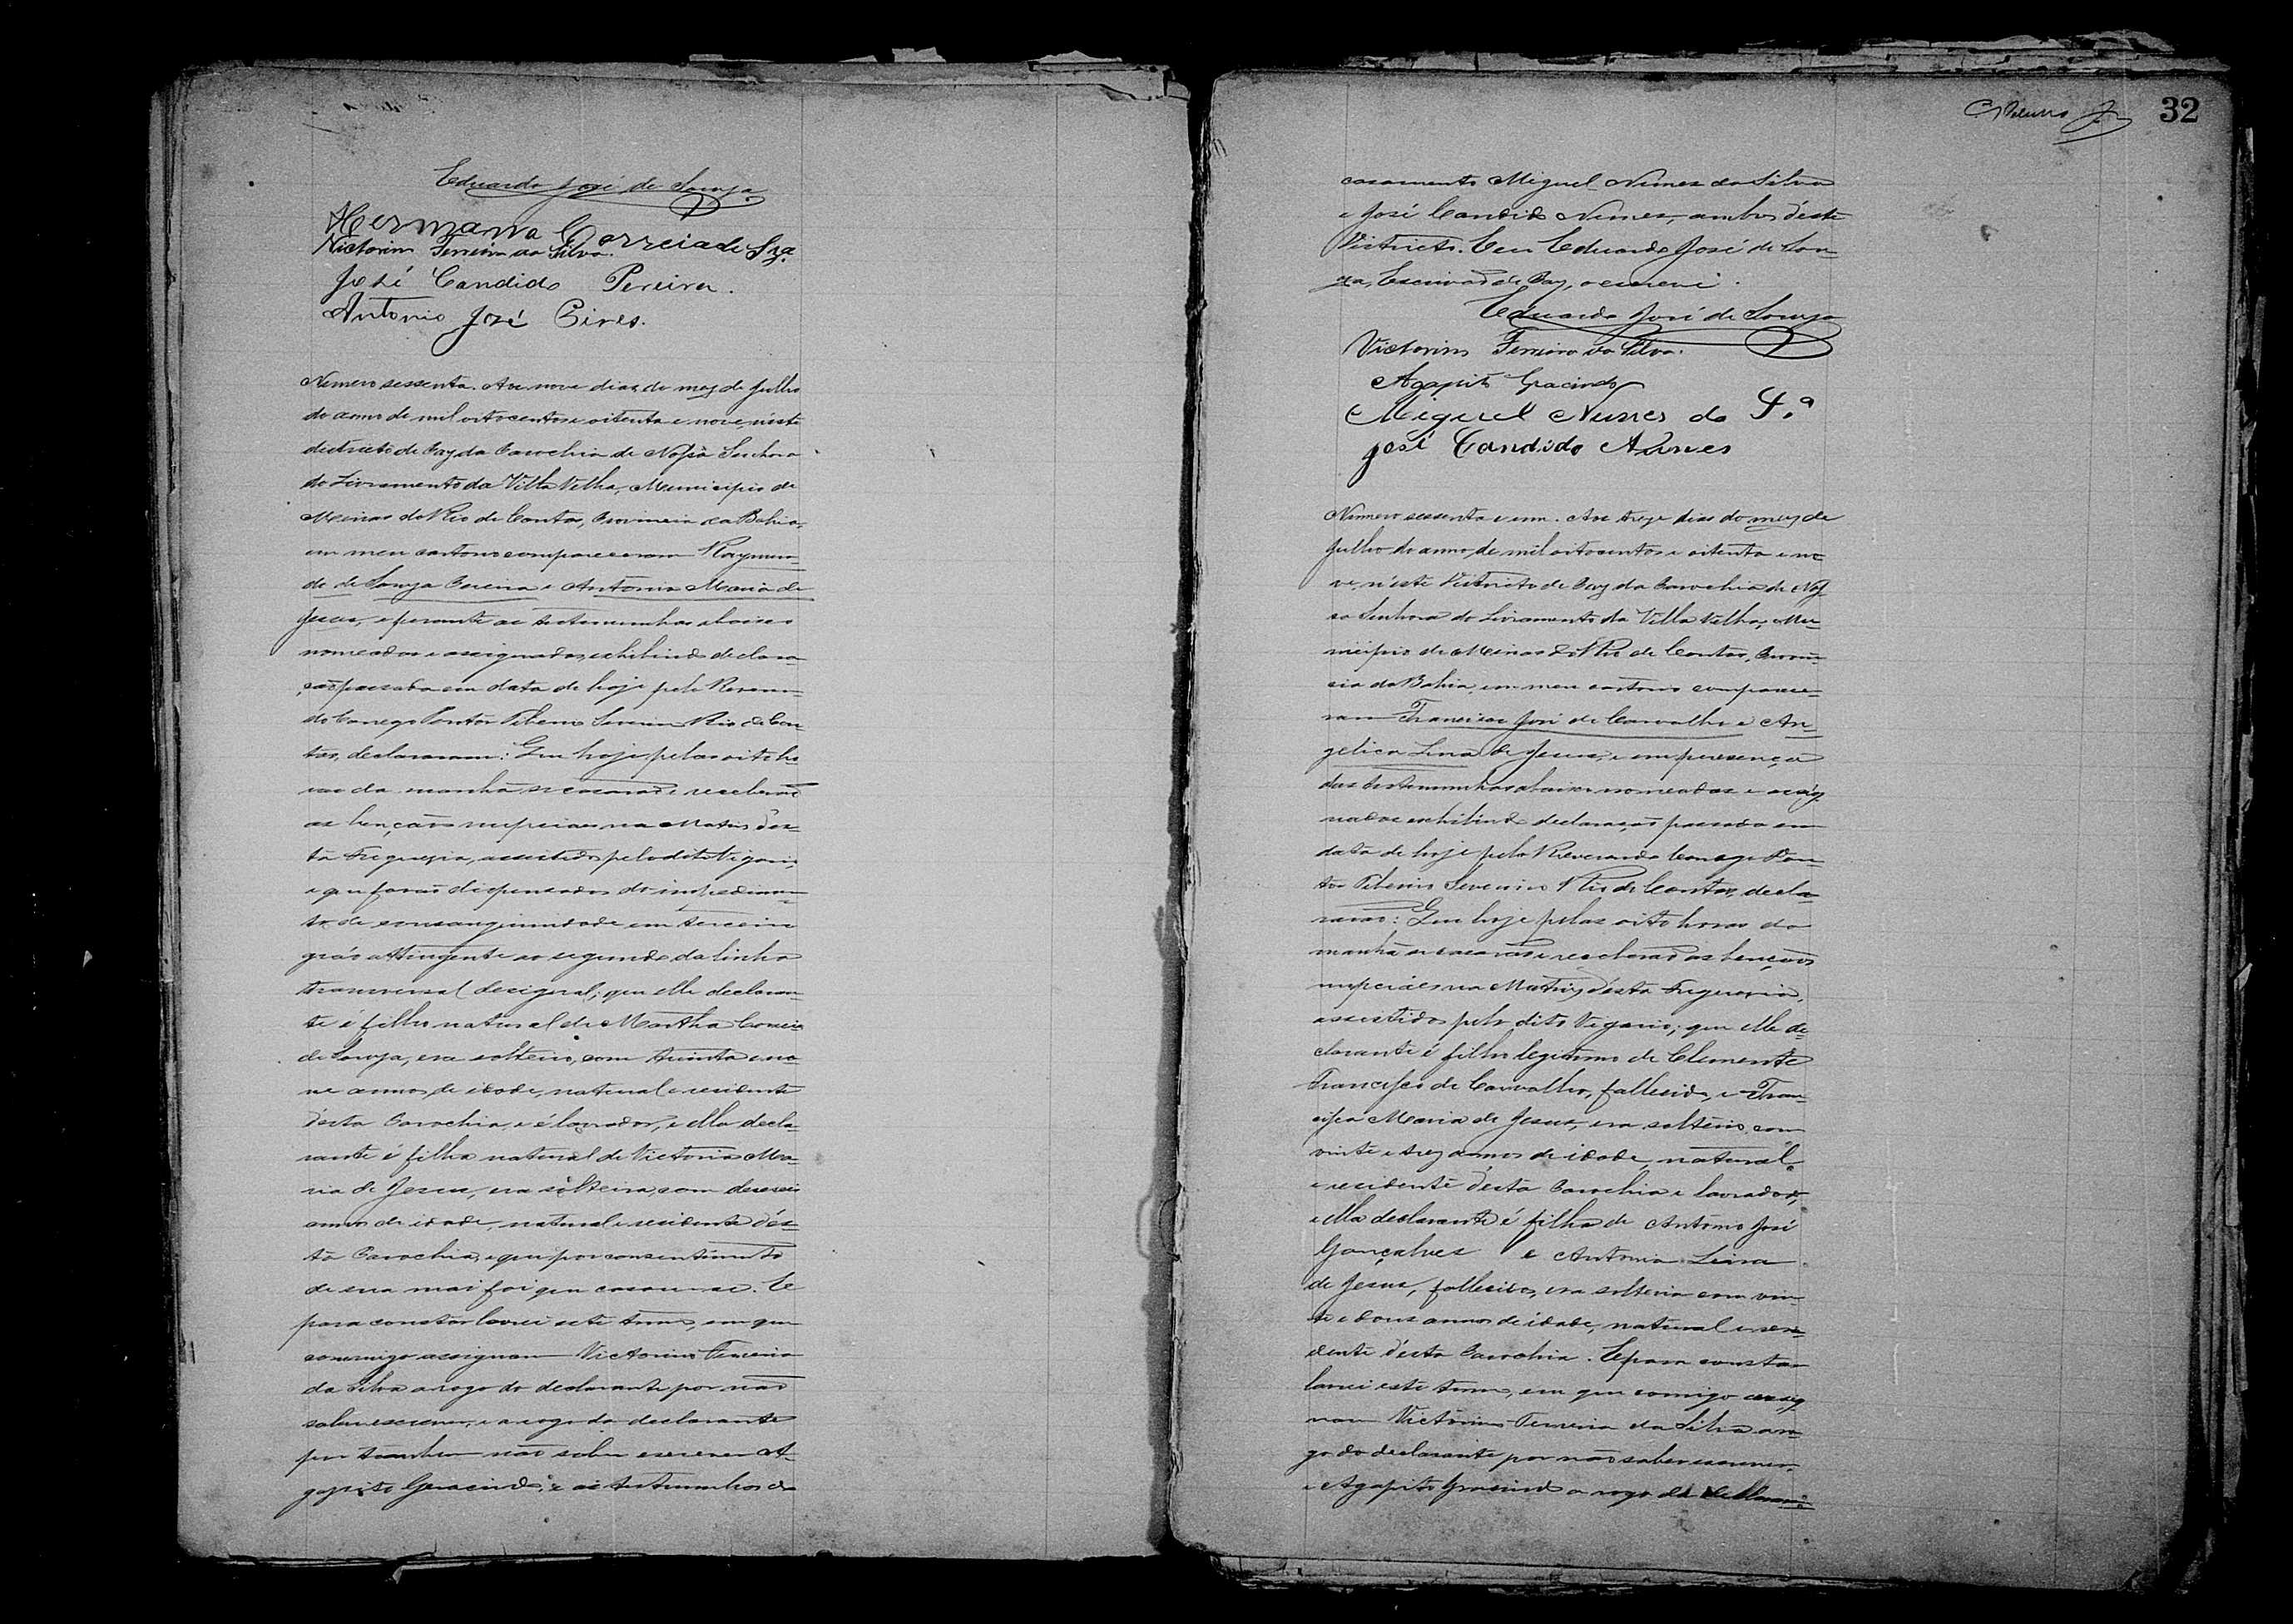 Eduardo José de Souza
Hermana Correia de Sza
Victorino Ferreira da Silva.
José Candido Pereira.
Antonio José Pires.
Numero sessenta. Aos nove dias do mez de Julho
do anno de mil oitocentos e oitenta e nove, n'este
districto de Paz da Parochia de Nossa Senhora
do Livramento da Villa Velha, Municipio de
Minas do Rio de Contas, Provincia da Bahia,
em meu cartorio compareceram Raymun-
do de Souza Pereira e Antonia Maria de
Jesus, e perante as testemunhas abaixo
nomeadas e assignadas, exhibindo declara-
ção passada em data de hoje pelo Reveren-
do Conego Pontor Tiberio Severino Rio de Con-
tas, declararam: Que hoje pelas oito ho-
ras da manhã se casarão e receberão
as bençãos nupciaes na Matriz des-
ta Freguezia, assistidos pelo dito Vigario,
e que forão dispensados do impedimen-
to de consanguinidade em terceiro
gráo attingente ao segundo da linha
transversal desigual; que elle declaran-
te é filho natural de Martha Correia
de Souza, era solteiro, com trinta e no-
ve annos de idade, natural e residente
d'esta Parochia, e é lavrador, e ella decla-
rante é filha natural de Victoria Ma-
ria de Jesus, era solteira, com deseseis
annos de idade, natural e residente d'es-
ta Parochia, e que por consentimento
de sua mai foi que casou-se. E
para constar lavrei este termo, em que
commigo assignam Victorino Ferreira
da Silva a rogo do declarante por não
saber escrever, e a rogo da declarante
por tambem não saber escrever A-
gapito Gracindo, e as testemunhas do
32
casamento Miguel Nunes da Silva
e José Candido Nunes, ambos d'este
Districto. Eu Eduardo José de Sou-
za, Escrivão de Paz, o escrevi.
Eduardo José de Souza
Victorino Ferreira da Silva.
Agapito Gracindo
Miguel Nunes da S.ª
José Candido Nunes
Numero sessenta e um. Aos treze dias do mez de
Julho do anno de mil oitocentos e oitenta e no-
ve, n'este Districto de Paz da Parochia de Nos-
sa Senhora do Livramento da Villa Velha, Mu-
nicipio de Minas do Rio de Contas, Provin-
cia da Bahia, em meu cartorio comparece-
ram Francisco José de Carvalho e An-
gelica Lina de Jesus, e em presença
das testemunhas abaixo nomeadas e assig-
nadas exhibindo declaração passada em
data de hoje pelo Reverendo Conego Pon-
tor Tiberio Severino Rio de Contas, decla-
rarão: Que hoje pelas oito horas da
manhã se casarão e receberão as bençãos
nupciaes na Matriz d'esta Freguezia,
assistidos pelo dito Vigario; que elle de-
clarante é filho legitimo de Clemente
Francisco de Carvalho, fallecido, e Fran-
cisca Maria de Jesus, era solteiro, com
vinte e trez annos de idade, natural
e residente d'esta Parochia e lavrador,
e ella declarante é filha de Antonio José
Gonçalves e Antonia Lina
de Jesus, fallecidos, era solteira com vin-
te e dous annos de idade, natural e resi-
dente d'esta Parochia. E para constar
lavrei este termo, em que comigo assig-
nam Victorino Ferreira da Silva a ro-
go do declarante por não saber escrever,
e Agapito Gracindo a rogo da declaran-